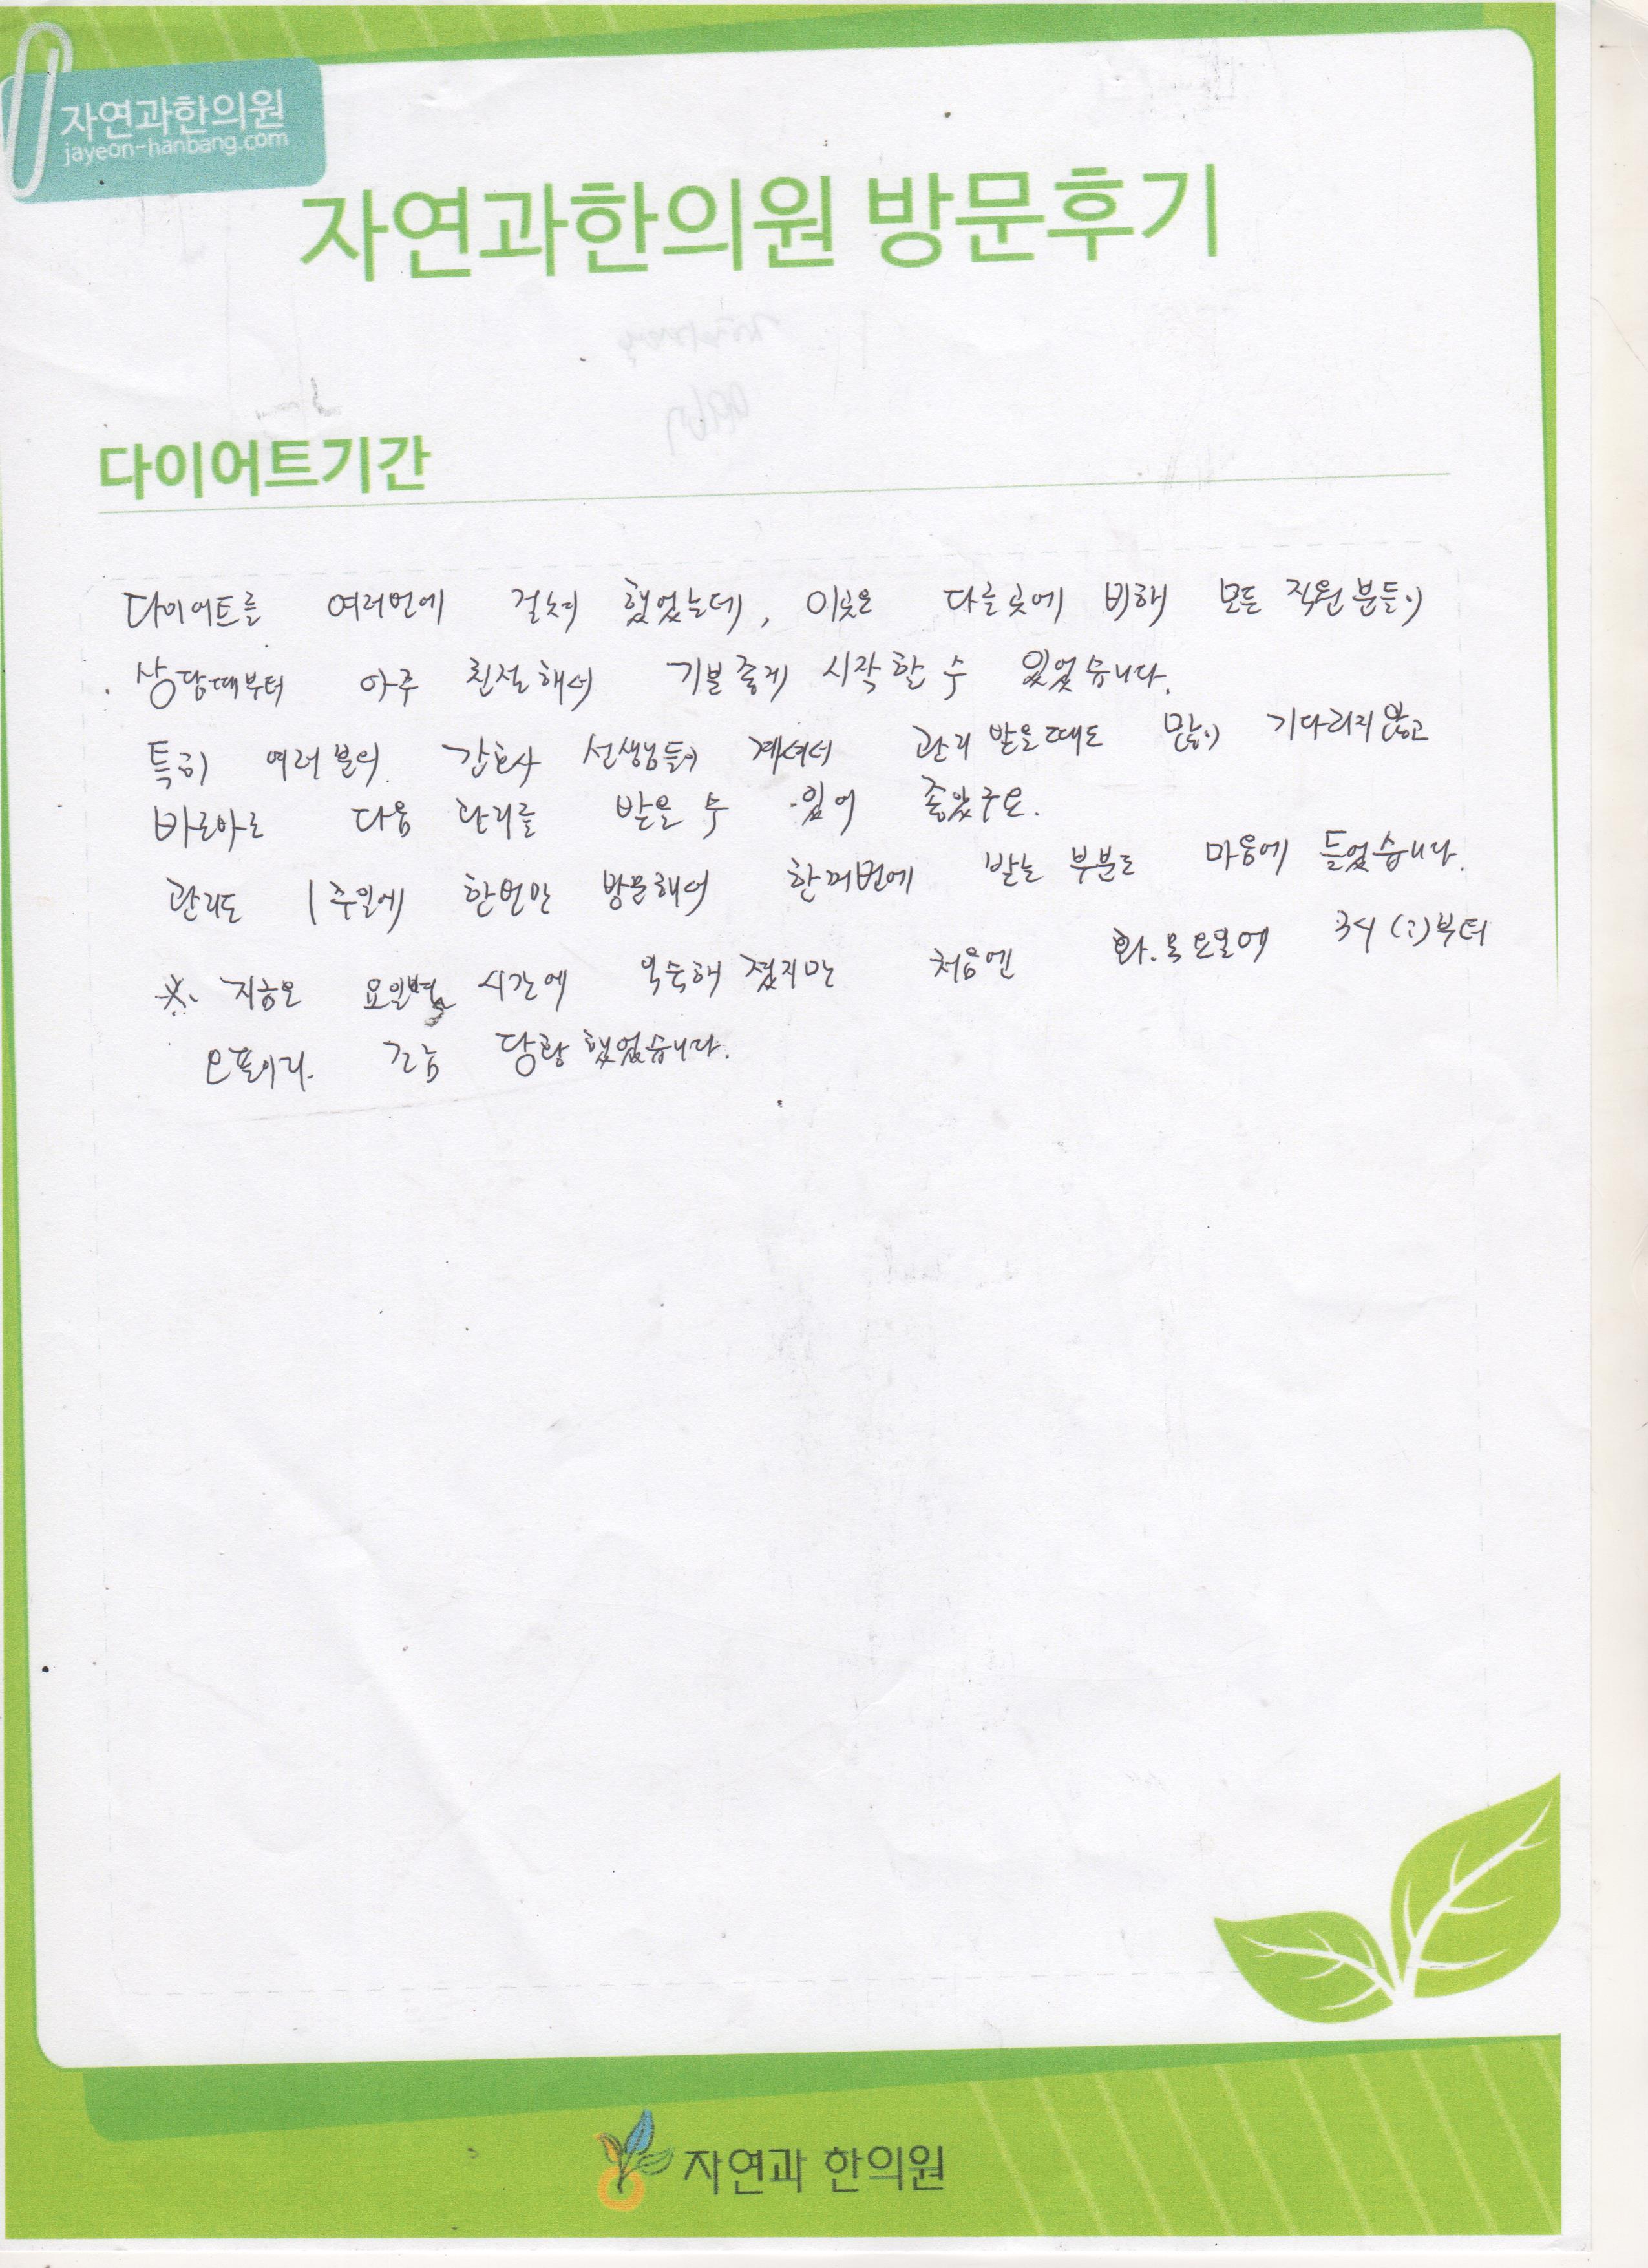 자연과한의원
jayeon-hanbang.com
자연과한의원 방문후기
다이어트기간
다이어트를 여러번에 걸쳐 했었는데, 이곳은 다른곳에 비해 모든 직원분들이
상담때부터 아주 친절해서 기분좋게 시작할 수 있었습니다.
특히 여러분의 간호사 선생님들이 계셔서 관리 받을때도 많이 기다리지 않고
바로바로 다음 관리를 받을 수 있어 좋았구요.
관리도 1주일에 한번만 방문해서 한꺼번에 받는 부분도 마음에 들었습니다.
※ 지금은 요일별 시간에 익숙해 졌지만 처음엔 화.목요일에 3시(?)부터
오픈이라 조금 당황했었습니다.
자연과 한의원